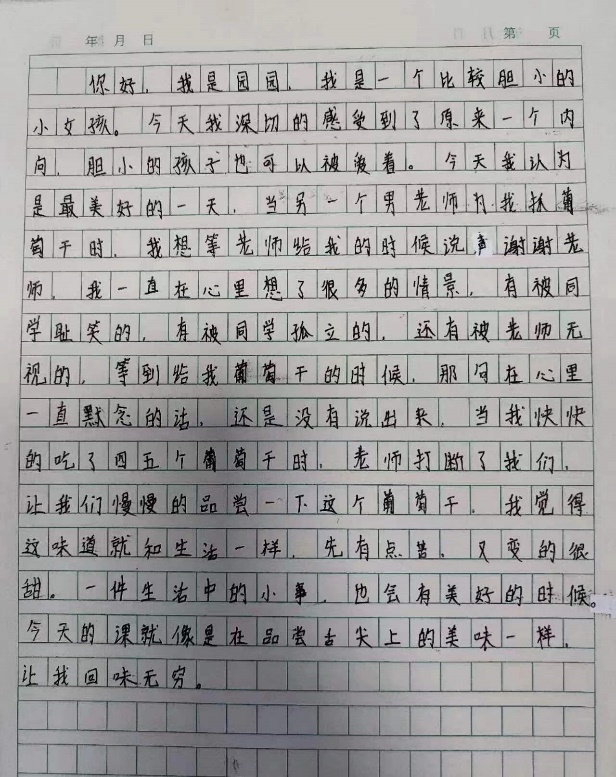 年 月 日 第 页
你好，我是园园，我是一个比较胆小的
小女孩。今天我深切的感受到了原来一个内
向，胆小的孩子也可以被爱着。今天我认为
是最美好的一天，当另一个男老师为我抓葡
萄干时，我想等老师给我的时候说，谢谢老
师，我一直在心里想了很多的情景，有被同
学耻笑的，有被同学孤立的，还有被老师无
视的，等到给我葡萄干的时候，那句在心里
一直默念的话，还是没有说出来，当我快快
的吃了四五个葡萄干时，老师打断了我们，
让我们慢慢的品尝一下这个葡萄干，我觉得
这味道就和生活一样，先有点苦，又变的很
甜。一件生活中的小事，也会有美好的时候。
今天的课就像是在品尝舌尖上的美味一样，
让我回味无穷。